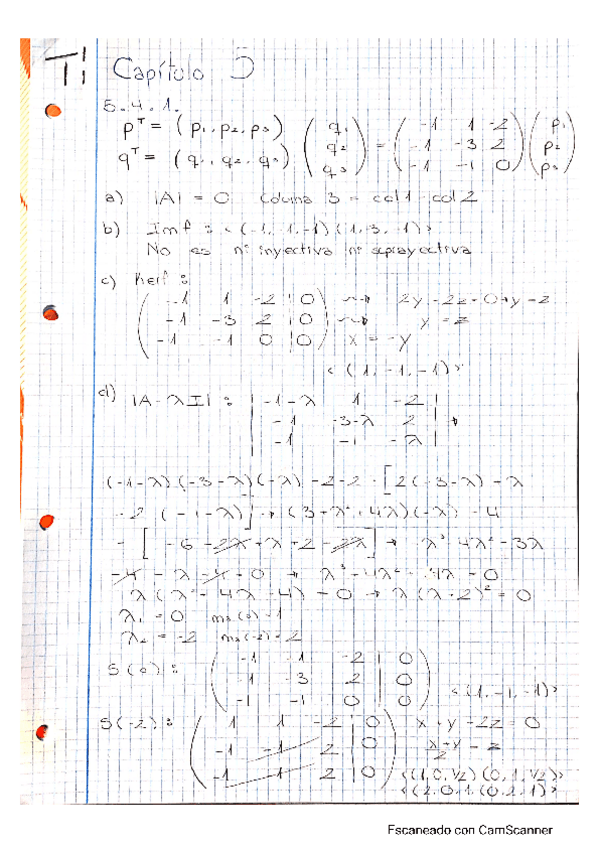 T1 Capítulo 5
5.4.1.
pᵀ = (p₁, p₂, p₃) (q₁ q₂ q₃) = (-1 1 -2 / -1 -3 2 / -1 -1 0) (p₁ p₂ p₃)
qᵀ = (q₁, q₂, q₃)
a) |A| = 0 Columna 3 = col 1 - col 2
b) Im f : <(-1, 1, -1) (1, -3, -1)>
No es ni inyectiva ni suprayectiva
c) Ker f :
( -1 1 -2 | 0 ) ⇝ 2y - 2z = 0 → y = z
-1 -3 2 | 0 ⇝ y = z
-1 -1 0 | 0 x = -y
<(1, -1, -1)>
d) |A - λI| : | -1-λ 1 -2 |
-1 -3-λ 2 | →
-1 -1 -λ |
(-1-λ)(-3-λ)(-λ) - 2 - 2 - [2(-3-λ) - λ
- 2(-1-λ)] → (3 + λ² + 4λ)(-λ) - 4
- [-6 - 2λ + λ + 2 - 2λ] → -λ³ - 4λ² - 3λ
-4 - λ - 4 = 0 → λ³ - 4λ² - 4λ = 0
λ(λ² - 4λ - 4) = 0 → λ(λ + 2)² = 0
λ₁ = 0 ma(0) = 1
λ₂ = -2 ma(-2) = 2
S(0) : ( -1 -1 -2 | 0 )
-1 -3 2 | 0
-1 -1 0 | 0 <(1, -1, -1)>
S(-2) : ( 1 1 -2 | 0 ) x + y - 2z = 0
-1 -1 2 | 0 x+y/2 = z
-1 -1 2 | 0 <(1, 0, 1/2) (0, 1, 1/2)>
<(2, 0, 1) (0, 2, 1)>
Escaneado con CamScanner